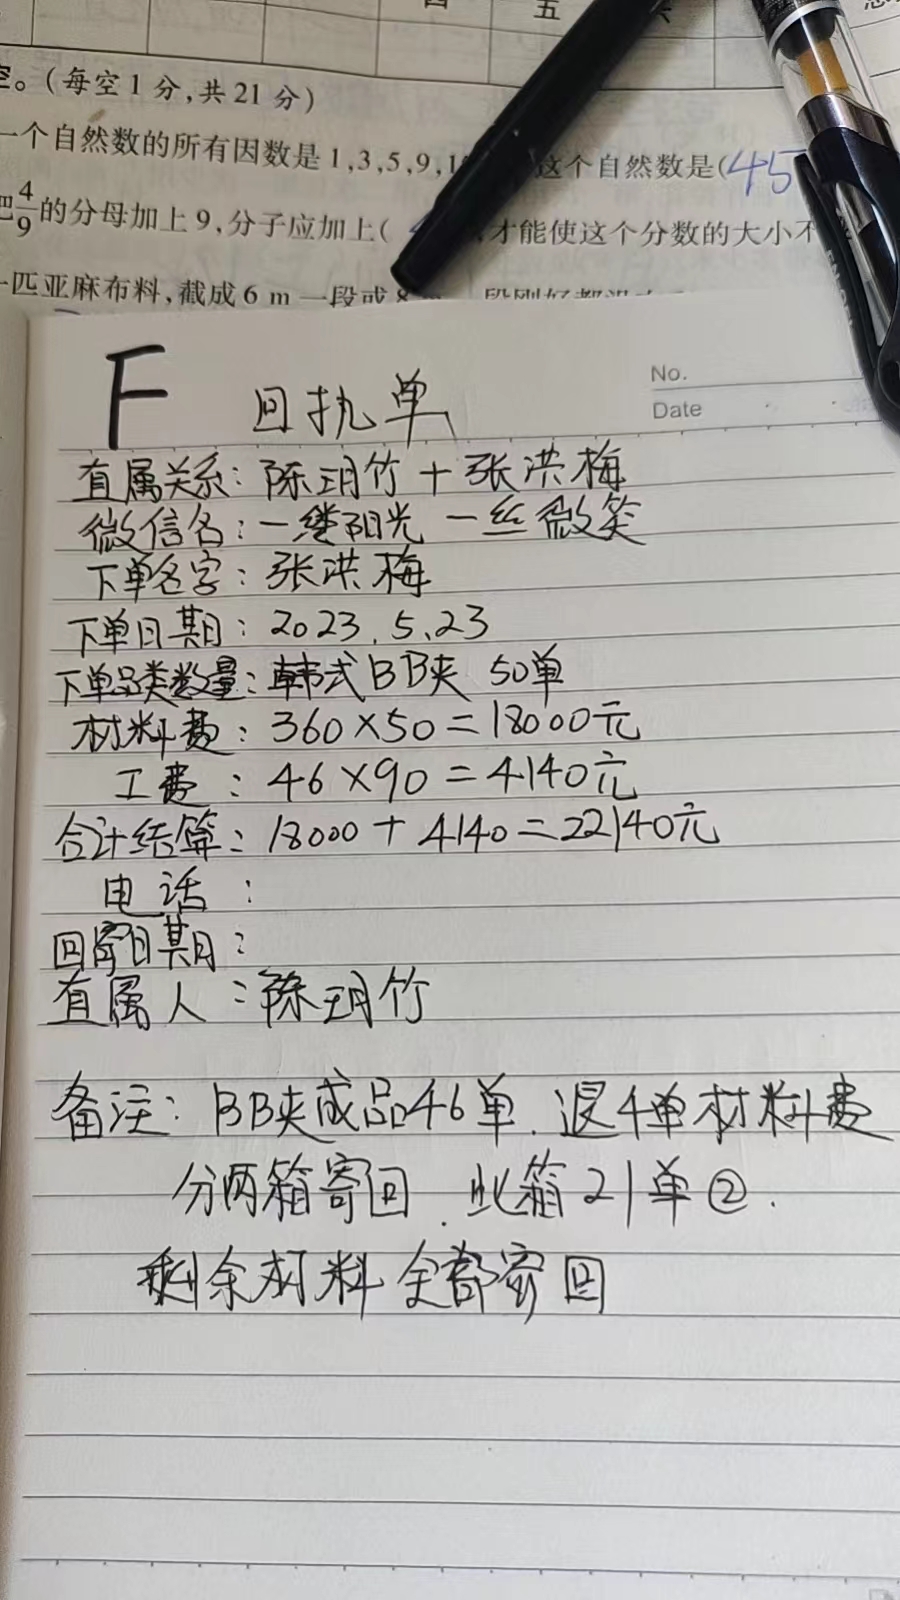 四 五 六
空。(每空1分,共21分)
一个自然数的所有因数是1,3,5,9,1 这个自然数是(45
把4/9的分母加上9,分子应加上( ,才能使这个分数的大小不
一匹亚麻布料,截成6 m 一段或8 m
F 回执单
No.
Date
直属关系:陈玥竹+张洪梅
微信名:一缕阳光 一丝微笑
下单名字:张洪梅
下单日期:2023.5.23
下单品类数量:韩式BB夹 50单
材料费:360×50=18000元
工费:46×90=4140元
合计结算:18000+4140=22140元
电话:
回寄日期:
直属人:陈玥竹
备注:BB夹成品46单.退4单材料费
分两箱寄回.此箱21单②.
剩余材料全部寄回